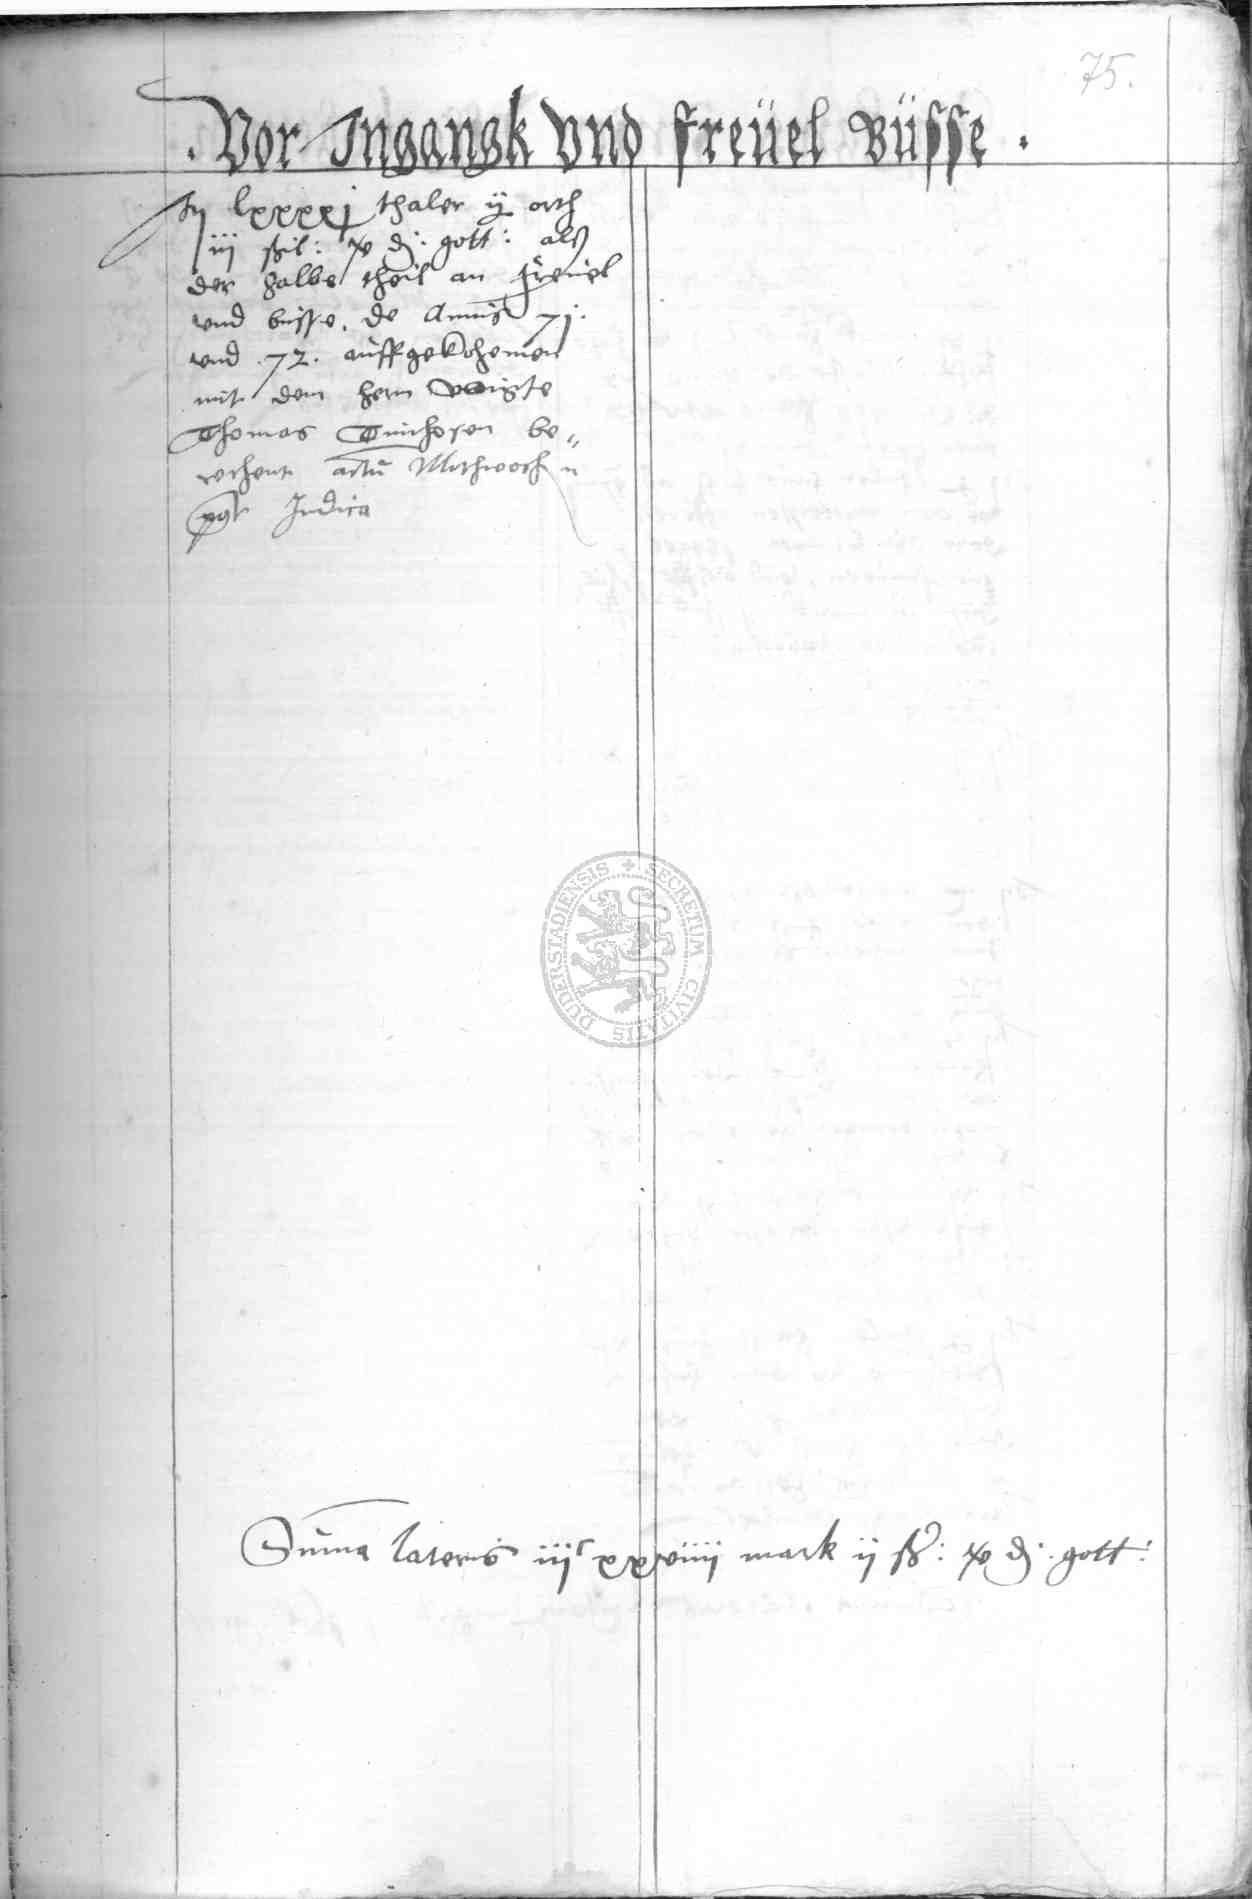 75.
. Vor Ingangk Vnd freüel Büsse .
lxxxxj thaler ij orth
iij ßil: xv dj. gott: alß
der halbe theil an freuel
vnd busse, de Annis 71.
vnd .72. auffgekohemen
mit dem hern
Thomas be„
rechent actū Mithwoch n
post Judica
DUDERSTADIENSIS + SECRETUM CIVITATIS
Suma lateris iijc xxxviiij mark ij ß: xv dj. gott: